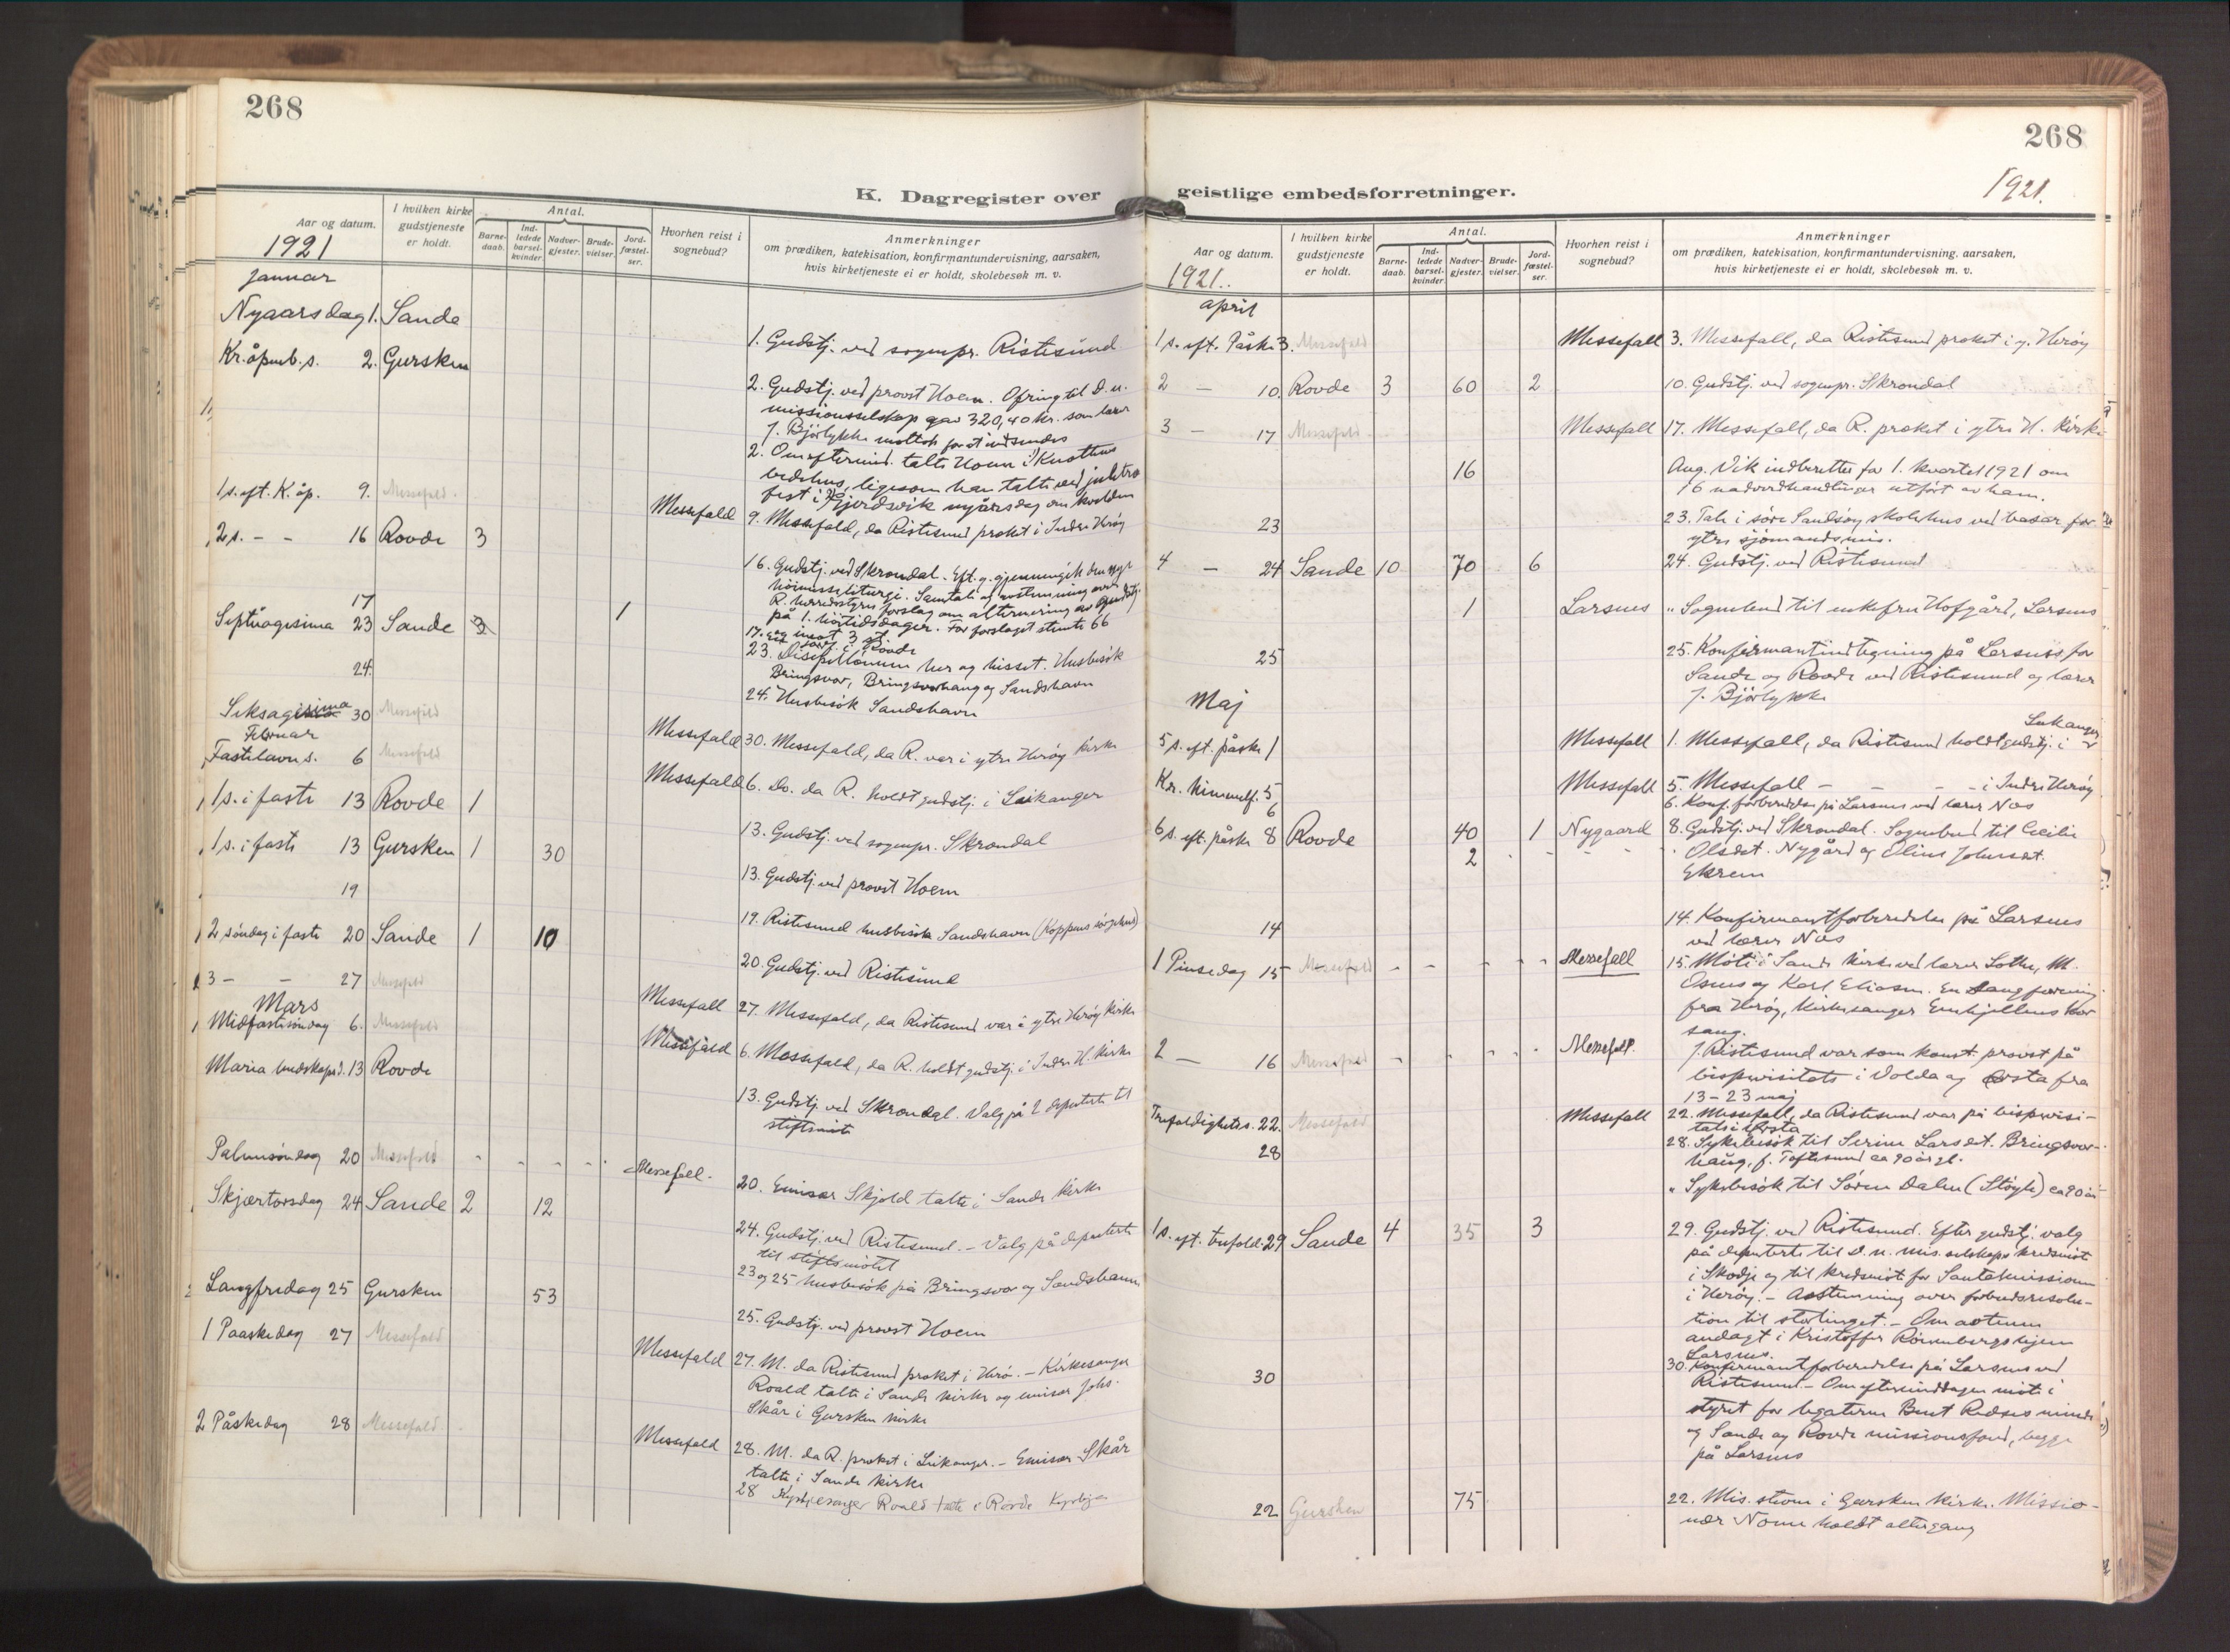 268
K. Dagregister over
Aar og datum.
1921
I hvilken kirke
gudstjeneste
er holdt.
Antal.
Barne-
daab.
Ind-
ledede
barsel-
kvinder.
Nadver-
gjester.
Brude-
vielser.
Jord-
fæstel-
ser.
Hvorhen reist i
sognebud?
Anmerkninger
om prædiken, katekisation, konfirmantundervisning, aarsaken,
hvis kirketjeneste ei er holdt, skolebesøk m. v.
Januar
Nyaarsdag 1. Sande
1. Gudstj. ved sognepr. Ristesund
Kr. åpenb. s. 2. Gursken
2. Gudstj. ved provst Hoem. Ofring til D. n.
missionsselskap gav 320,40 kr. som lærer
J. Bjørlykke mottok for at indsendes
2. Om eftermid. talte Hoem i Knotten
bedehus, ligesom han talte ved juletre
fest i Fjerdsvik nyårsdag om kvelden
1 s. eft. K. åp. 9. Messefald. Messefald
9. Messefald, da Ristesund præket i Indre Herøy
2 s. - - 16 Rovde 3
16. Gudstj. ved Skrondal. Eft. g. gjennemgik den nye
høimesseliturgi. Samtale og avstemning over
R. herredsstyres forslag om alternering av gudstj.
på 1. høitidsdager. For forslaget stemte 66
og imot 3 st.
17 1
17. en jordf. i Rovde
Septuagesima 23 Sande 3
23. Husbesøk
Bringsvor, Bringsvorhaug og Sandshavn
24.
24. Husbesøk Sandshavn
Seksagesima 30 Messefald Messefald
30. Messefald, da R. var i ytre Herøy kirke
Februar
Fastelavns. 6 Messefald Messefald
6. Do. da R. holdt gudstj. i Leikanger
1 s. i faste 13 Rovde 1
13. Gudstj. ved sognepr. Skrondal
1 s. i faste 13 Gursken 1 30
13. Gudstj. ved provst Hoem
19
19. Ristesund husbesøk Sandshavn
2 søndag i faste 20 Sande 1 10
20. Gudstj. ved Ristesund
3 - - 27 Messefald Messefall
27. Messefald, da Ristesund var i ytre Herøy kirke
Mars
Midfastesøndag 6. Messefald Messefald
6. Messefald, da R. holdt gudstj. i Indre H. kirke
Maria budskapsd. 13 Rovde
13. Gudstj. ved Skrondal. Valg på 2 deputerte til
stiftsmøte
Palmesøndag 20 Messefald Messefall.
20. Emisær Skjold talte i Sande kirke
Skjærtorsdag 24 Sande 2 12
24. Gudstj. ved Ristesund. - Valg på deputerte
til stiftsmøtet
23 og 25 husbesøk på Bringsvor og Sandshavn
Langfredag 25 Gursken 53
25. Gudstj. ved provst Hoem
1 Paaskedag 27 Messefald Messefald
27. M. da Ristesund præket i Herø. - Kirkesanger
Roald talte i Sande kirke og emisær Johs.
Skår i Gursken kirke
2 Påskedag 28 Messefald Messefald
28. M. da R. præket i Leikanger. - Emisær Skår
talte i Sande kirke
28 Kyrkjesongar Roald talte i Rovde Kyrkja
268
1921.
geistlige embedsforretninger.
Aar og datum.
1921.
I hvilken kirke
gudstjeneste
er holdt.
Antal.
Barne-
daab.
Ind-
ledede
barsel-
kvinder.
Nadver-
gjester.
Brude-
vielser.
Jord-
fæstel-
ser.
Hvorhen reist i
sognebud?
Anmerkninger
om prædiken, katekisation, konfirmantundervisning, aarsaken,
hvis kirketjeneste ei er holdt, skolebesøk m. v.
april
1 s. eft. Påske 3. Messefald Messefall
3. Messefall, da Ristesund præket i y. Herøy
2 - 10. Rovde 3 60 2
10. Gudstj. ved sognepr. Skrondal
3 - 17 Messefald Messefall
17. Messefall, da R. præket i ytre H. kirke
16
Aug. Vik indberetter for 1. kvartal 1921 om
16 nadverdhandlinger utført av ham.
23
23. Tale i søre Sandsøy skolehus ved basar for
ytre sjømandsmis.
4 - 24 Sande 10 70 6
24. Gudstj. ved Ristesund
1 Larsnes
" Sognebud til enkefru Hofgård, Larsnes
25
25. Konfirmantindtegning på Larsnes for
Sande og Rovde ved Ristesund og lærer
J. Bjørlykke
Maj
5 s. eft. påske 1 Messefall
1. Messefall, da Ristesund holdt gudstj. i Leikanger
Kr. himmelf. 5 Messefall
5. Messefall - - - - i Indre Herøy
6
6. Konf. forberedelse på Larsnes ved lærer Nos
6 s. eft. påske 8 Rovde 40 1 Nygaard
8. Gudstj. ved Skrondal. Sognebud til Cecilie
2
Olsdat. Nygård og Oline Johnsdat.
Ekrem
14
14. Konfirmantforberedelse på Larsnes
ved lærer Nos
1 Pinsedag 15 Messefald Messefall
15. Møte i Sande kirke ved lærer Sothe, M.
Osnes og Karl Eliasen. En sangforening
fra Herøy, kirkesanger kor
sang.
2 - 16 Messefald Messefall.
J. Ristesund var som konst. provst på
bispevisitats i Volda og Ørsta fra
13-23 maj
Trefoldighets s. 22. Messefald Messefall
22. Messefall, da Ristesund var på bispevisi-
tats i Ørsta
28
28. Sykebesøk til Serine Larsdat. Bringsvor-
haug, f. Toftesund ca 90 år gl.
" Sykebesøk til Søren Dalen (Støyle) ca 90 år
1 s. eft. trefold. 29 Sande 4 35 3
29. Gudstj. ved Ristesund. Efter gudstj. valg
på deputerte til d. n. mis. selskaps kredsmøte
i Skodje og til kredsmøte for Santalmissionen
i Herøy. - Avstemning over forbudsresolu-
tion til stortinget. - Om aftenen
andagt i Kristoffer
Larsnes.
30
30. Konfirmantforberedelse på Larsnes ved
Ristesund. - Om eftermiddagen møte i
styret for legaterne minde
og Sande og Rovde missionsfond, begge
på Larsnes
22 Gursken 75
22. Mis. stevne i Gursken kirke. Missio-
nær holdt altergang